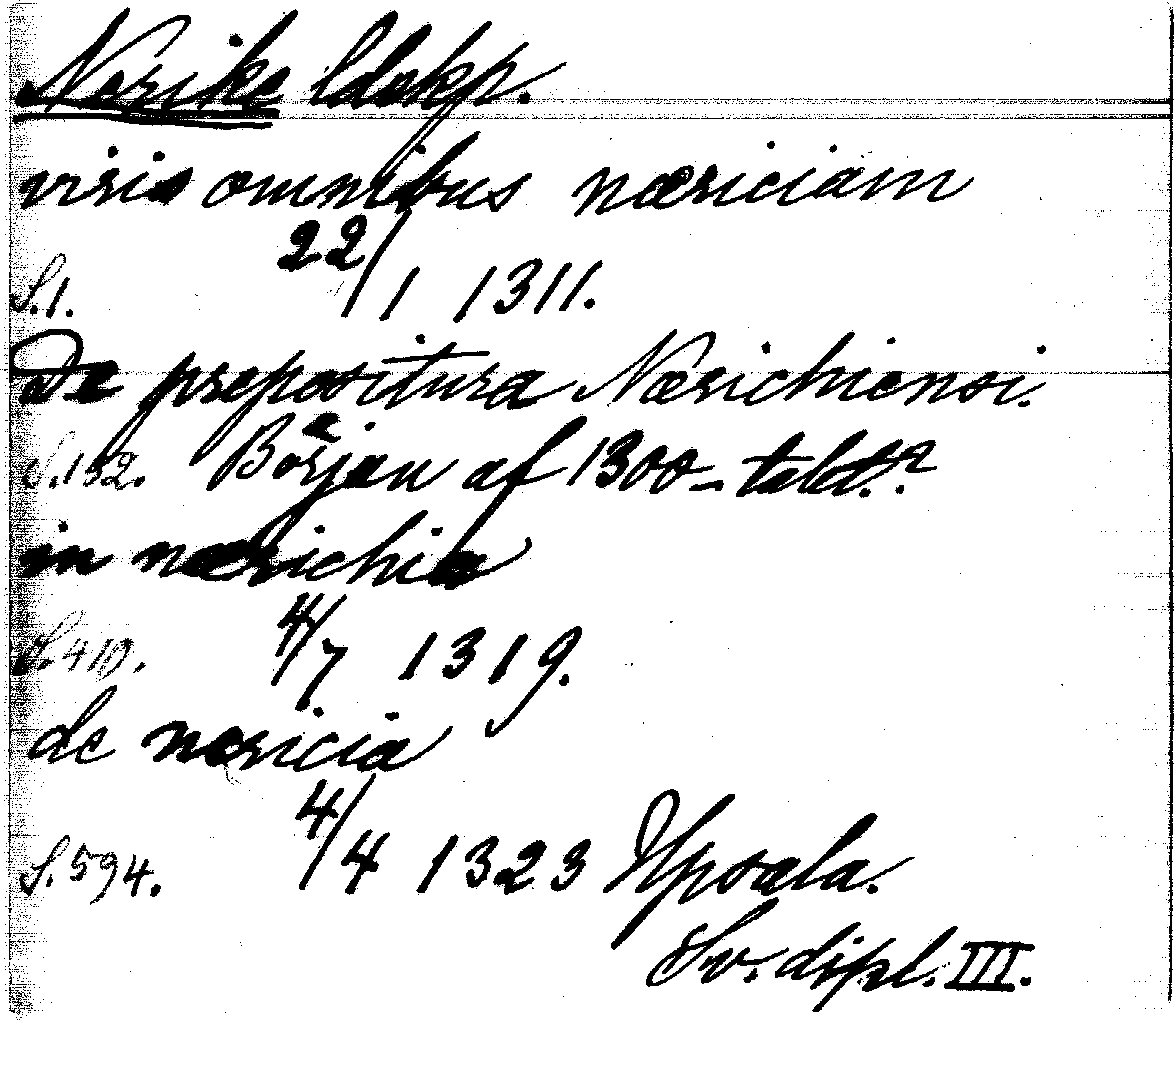 Nerike ldskp.
viris omnibus næriciam
S.1. 22/1 1311.
De prepositura Nærichiensi.
S.132. Början af 1300-talet.?
in nærichia
S.410. 4/7 1319.
de nericia
S.594. 4/4 1323 Upsala.
Sv. dipl. III.